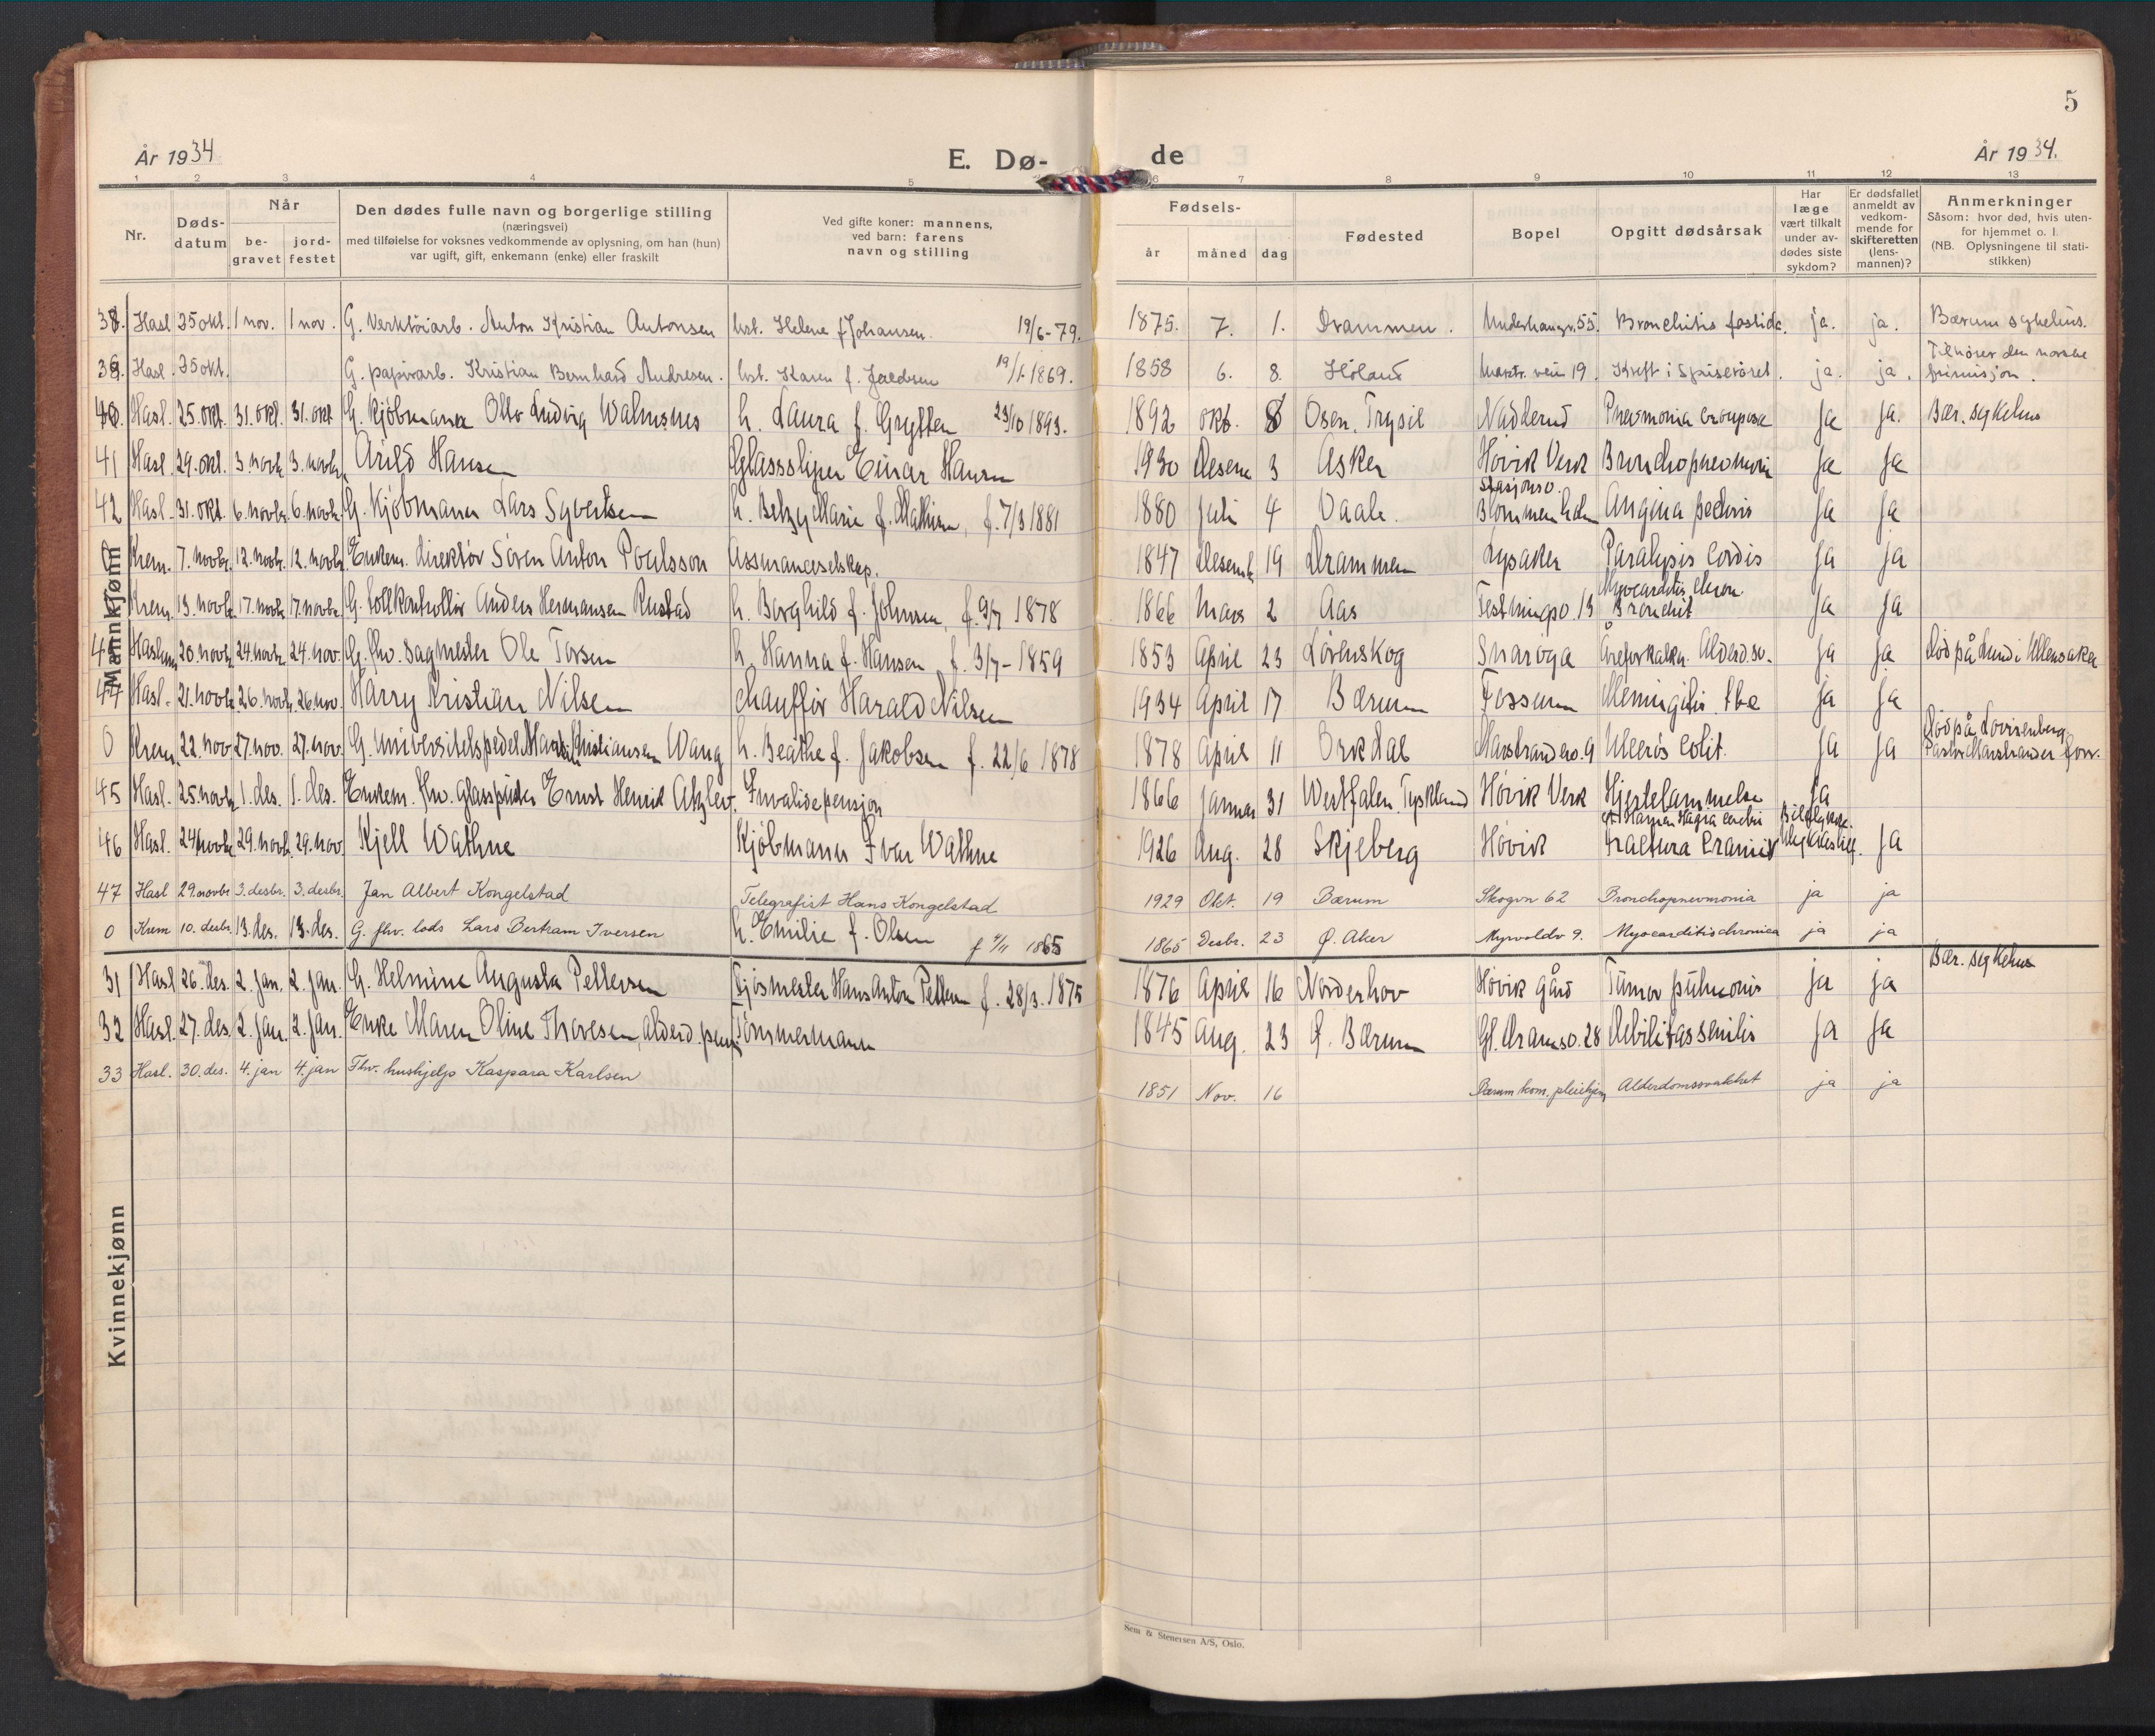 5
År 1934
E. Dø-
de
År 1934.
1 2 3 4 5 6 7 8 9 10 11 12 13
Nr.
Døds-
datum
Når
be-
gravet
jord-
festet
Den dødes fulle navn og borgerlige stilling
(næringsvei)
med tilføielse for voksnes vedkommende av oplysning, om han (hun)
var ugift, gift, enkemann (enke) eller fraskilt
Ved gifte koner: mannens,
ved barn: farens
navn og stilling
Fødsels-
år måned dag
Fødested
Bopel
Opgitt dødsårsak
Har
læge
vært tilkalt
under av-
dødes siste
sykdom?
Er dødsfallet
anmeldt av
vedkom-
mende for
skifteretten
(lens-
mannen)?
Anmerkninger
Såsom: hvor død, hvis uten-
for hjemmet o. l.
(NB. Oplysningene til stati-
stikken)
Mannkjønn
38. Hasl 25 okt. 1 nov. 1 nov. G. Verktöiarb. Anton Kristian Antonsen hst. Helene f. Johansen. 18/6-79. 1875. 7. 1. Drammen. Underhaugv. 55. Bronchitis foetida. ja. ja. Bærum sykehus.
39. Hasl. 25 okt. G. papirarb. Kristian Bernhard Andresen. hst. Karen f. Jacobsen 19/1-1869. 1858 6. 8. Höland vein 19. Kreft i Spiseröret. ja. ja. Tilhörer den norske
40. Hasl. 25. okt. 31. okt. 31. okt G. Kjöbmann Otto Ludvig Walmsnes h. Laura f. Grytten 23/10 1893. 1892 okt. 8 Osen, Trysil Nadderud Pneumonia crouposa ja ja. Bær. sykehus
41 Hasl. 29. okt. 3. novb. 3. novbr. Arild Hansen Glasssliper Einar Hansen 1930 Desem 3 Asker Hövik Verk Bronchopneumoni ja ja
42 Hasl. 31. okt. 6. novbr. 6. novbr. G. Kjöbmann Lars Syvertsen h. Betzy Marie f. Mathisen, f. 7/3 1881 1880 juli 4 Vaale. Stasjonsv. Blommenholm Angina pectoris ja ja
0 Krem. 7. novbr. 12. novbr. 12. novbr. Enkem. direktör Sören Anton Poulsson Assuranceselskap. 1847 Desemb 19 Drammen Lysaker Paralysis cordis ja ja
Krem. 13. novbr. 17. novbr. 17. novbr. G. tollkontrollör Anders Hermansen Rustad h. Borghild f. Johnsen, f. 9/7 1878 1866 Mars 2 Aas 13 Myocarditis, chron. Bronchit ja ja
Haslum 20. novbr. 24. novbr. 24. nov. G. fhv. sagmester Ole Torsen h. Hanna f. Hansen f. 3/7-1859 1853 April 23 Lörenskog Snaröya Åreforkalkn. Alderd.sv. ja ja Död på Lund i Ullensaker
44 Hasl. 21. novb. 26. novb. 26. nov. Harry Kristian Nilsen Chaufför Harald Nilsen 1934 April 17 Bærum Fossum Meningitis tbc ja ja
0 Krem. 22. nov. 27. nov. 27. nov. G. Universitetspedel Martin Kristiansen Wang h. Beathe f. Jakobsen f. 22/6 1878 1878 April 11 Orkdal Marstrandersv. 9 Ulcerös colit. ja ja Död på Lovisenberg. Pastor Marstrander forr.
45 Hasl. 25. novb. 1. des. 1. des. Enkem. fhv. glasspuster Ernst Henrik Invalidepensjon 1866 januar 31 Westfalen. Tyskland Hövik Verk Hjertelammelse ja
46 Hasl. 24 novb. 29. novb. 29. nov. Kjell Wathne Kjöbmann Ivar Wathne 1926 Aug. 28 Skjeberg Hövik Fractura Cranii ja
47 Hasl 29. novbr 3. desbr. 3. desbr. Jan Albert Kongelstad Telegrafist Hans Kongelstad 1929 Okt. 19 Bærum Skogvn 62 Bronchopneumonia ja ja
0 Krem 10. desbr. 13. des. 13. des. G. fhv. lods Lars Bertram Iversen h. Emilie f. Olsen f 4/11 1865 1865 Desbr. 23 Ø. Aker Myrvoldv 9. Myocarditis chronica ja ja
Kvinnekjønn
31 Hasl 26. des. 2. jan. 2. jan. G. Helmine Augusta Pettersen Fjösmester Hans Anton Pettersen f. 28/3. 1875 1876 April 16 Norderhov Hövik gård Tumor pulmonis ja ja Bær. sykehus
32 Hasl. 27. des. 2. jan. 2. jan. Enke Maren Oline Thoresen, alderd. pens. Tömmermann 1845 Aug. 23 Ø. Bærum Gl. Dramsv. 28 Debilitas senilis ja ja
33 Hasl. 30. des. 4. jan 4. jan Fhv. hushjelp Kaspara Karlsen 1851 Nov. 16 Bærum kom. pleiehjem Alderdomssvakhet ja ja
Sem & Stenersen A/S, Oslo.